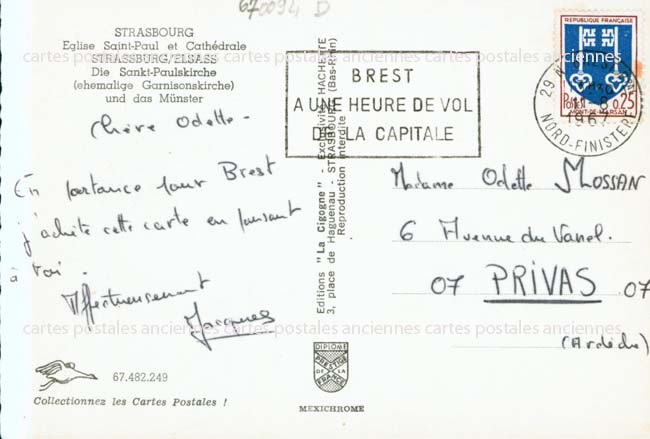 670094 D
STRASBOURG
Eglise Saint-Paul et Cathédrale
STRASSBURG/ELSASS
Die Sankt-Paulskirche
(ehemalige Garnisonskirche)
und das Münster
Chère Odette -
En partance pour Brest
j'achète cette carte en pensant
à toi.
Affectueusement
Jacques
67.482.249
Collectionnez les Cartes Postales !
Editions "La Cigogne" - Exclusivité HACHETTE
3, place de Haguenau - STRASBOURG (Bas-Rhin)
Reproduction interdite
DIPLOME
PRESTIGE
DE LA
FRANCE
MEXICHROME
BREST
A UNE HEURE DE VOL
DE LA CAPITALE
REPUBLIQUE FRANÇAISE
Postes 0,25
MONT-DE-MARSAN
29
11-8
1967
NORD-FINISTERE
Madame Odette MOSSAN
6 Avenue du Vanel.
07 PRIVAS 07
(Ardèche)
cartes postales anciennes cartes postales anciennes cartes postales anciennes
cartes postales anciennes cartes postales anciennes cartes postales anciennes